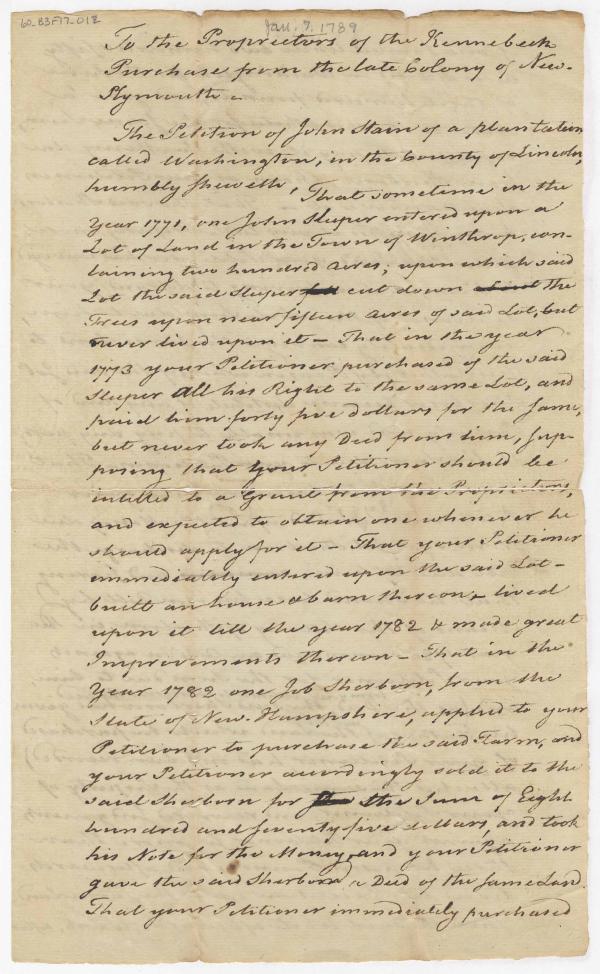 60-B3F17-012
Jan. 7. 1789
To the Proprietors of the Kennebeck
Purchase from the late Colony of New-
Plymouth.
The Petition of John Stain of a plantation
called Washington, in the County of Lincoln,
humbly sheweth, That sometime in the
Year 1771, one John Sleeper entered upon a
Lot of Land in the Town of Winthrop, con-
taining two hundred acres; upon which said
Lot the said Sleeper cut down the
Trees upon near fifteen acres of said Lot, but
never lived upon it - That in the year
1773 your Petitioner purchased of the said
Sleeper all his Right to the same Lot, and
paid him forty five dollars for the same,
but never took any Deed from him, sup-
posing that your Petitioner should be
intitled to a Grant from the Proprietors,
and expected to obtain one whenever he
should apply for it - That your Petitioner
immediately entered upon the said Lot -
built an house & barn thereon, lived
upon it till the year 1782 & made great
Improvements thereon - That in the
Year 1782 one Job Sherborn, from the
State of New-Hampshire, applied to your
Petitioner to purchase the said Farm, and
your Petitioner accordingly sold it to the
said Sherborn for the Sum of Eight
hundred and seventy five dollars, and took
his Note for the Money, and your Petitioner
gave the said Sherborn a Deed of the same Land.
That your Petitioner immediately purchased